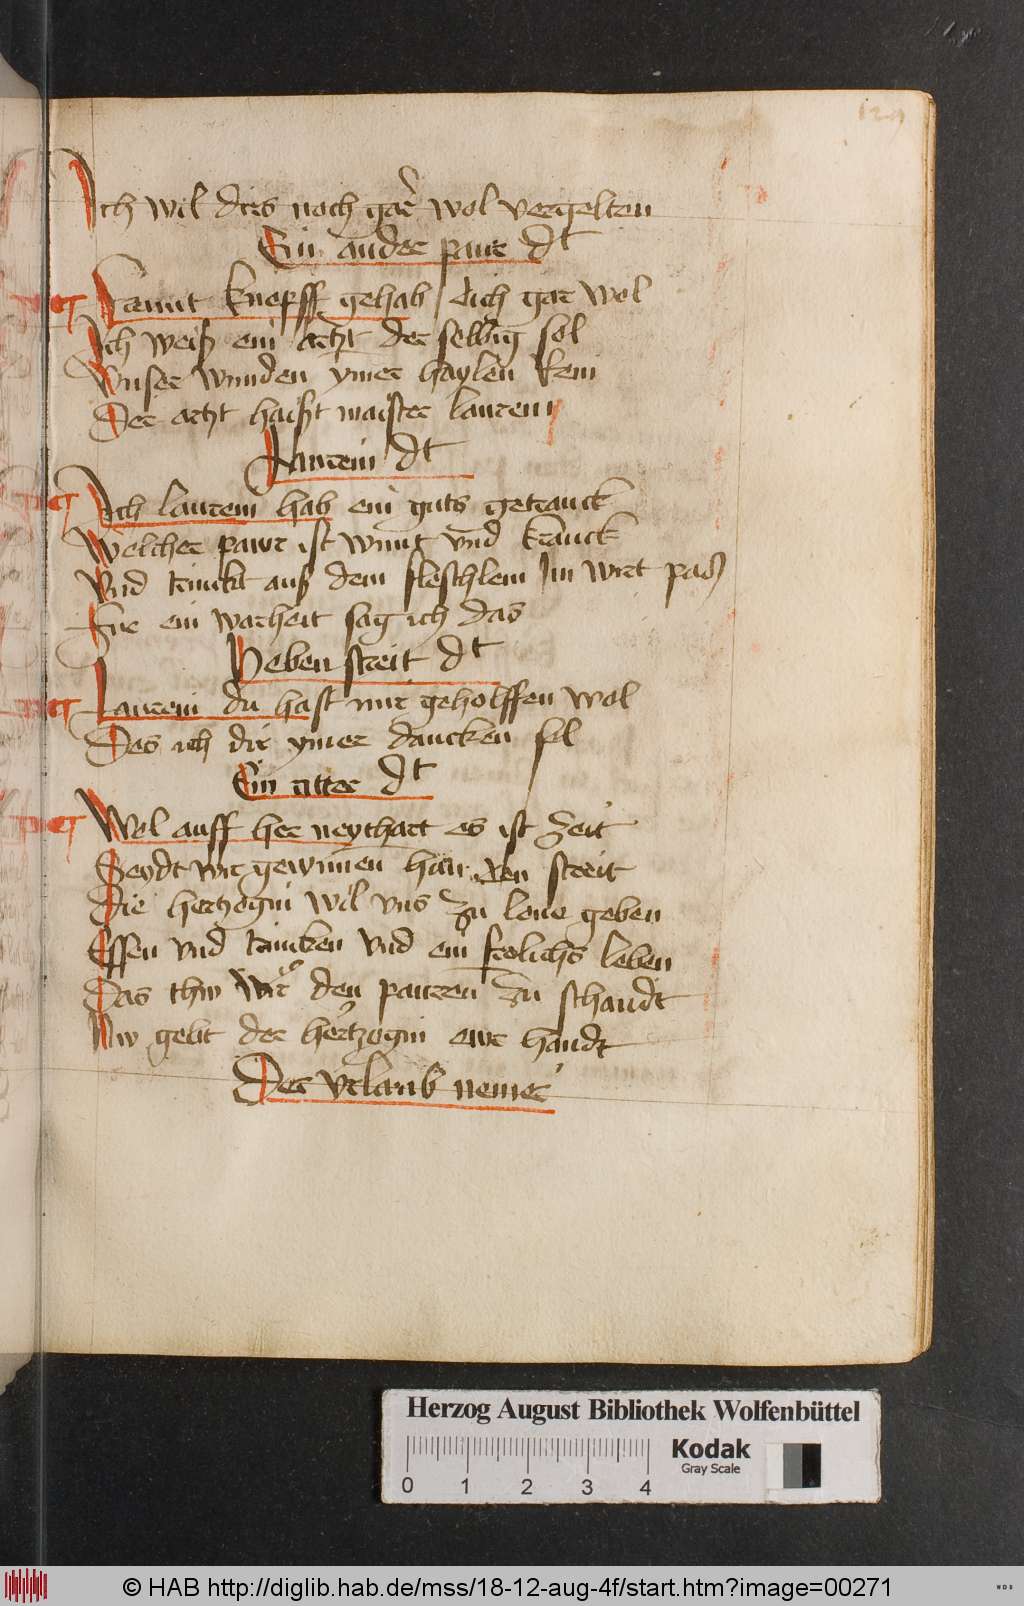 129
Ich wil dirs noch gar wol vergelten
Ein ander paur dt
Freunt knopff gehab dich gar wol
Ich weiß ein artzt der selbig sol
Vnser wunden ymer haylen kein
Der artzt haißt maister laurein
Laurein dt
Ich laurein hab ein guts getranck
Welcher paur ist wunt vnd kranck
Vnd trinckt auß dem fleschlein Im wirt paß
Fur ein warheit sag ich das
Heben streit dt
Laurein du hast mir geholffen wol
Des ich dir ymer dancken sol
Ein ritter dt
Wol auff her neythart es ist zeit
Seydt wir gewunnen han den streit
Die hertzogin wil vns zu lone geben
Essen vnd trincken vnd ein frolichs leben
Das thw wir den pauren zu schandt
Nw gebt der hertzogin ewr handt
Der vrlaub nemer
Herzog August Bibliothek Wolfenbüttel
Kodak
Gray Scale
0 1 2 3 4
© HAB http://diglib.hab.de/mss/18-12-aug-4f/start.htm?image=00271